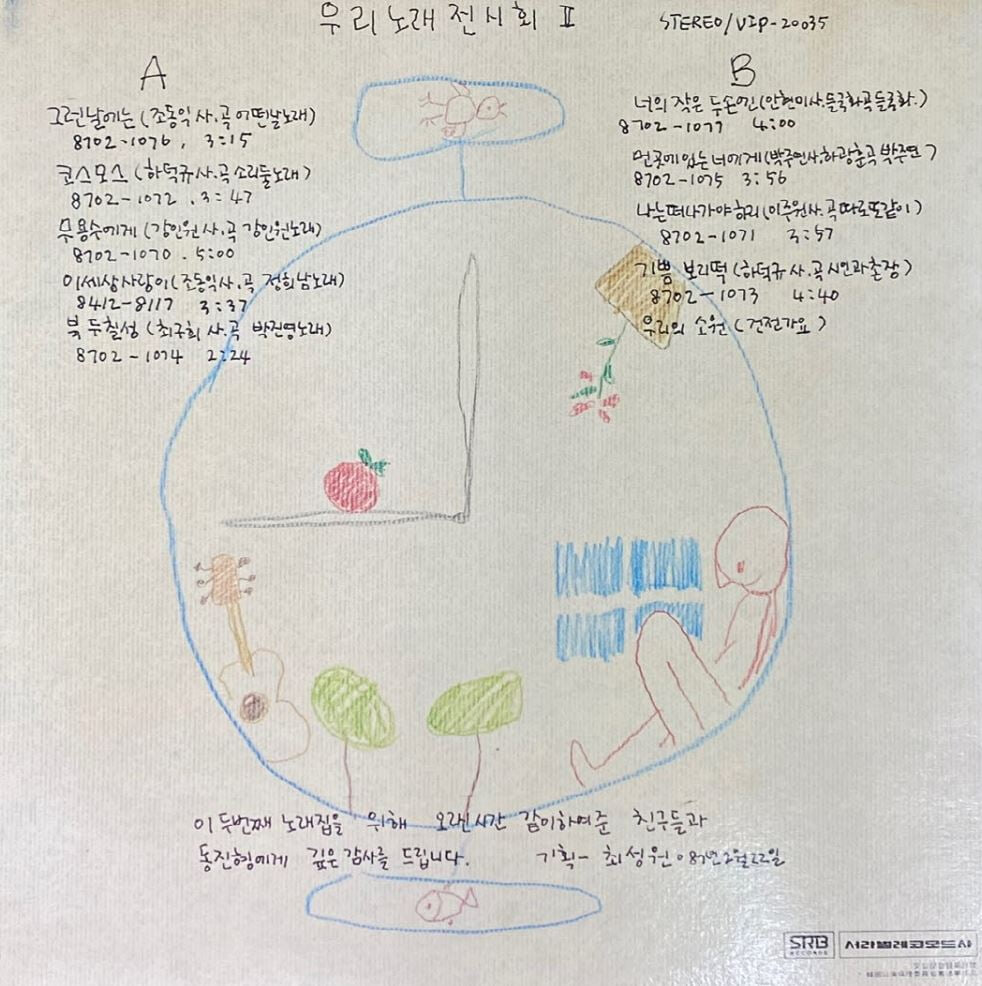 우리노래전시회 II
STEREO/VIP-20035
A
그런날에는 (조동익 사.곡 어떤날노래)
8702-1076, 3:15
코스모스 (하덕규 사.곡 소리둘노래)
8702-1072 . 3:47
무용수에게 (강인원 사.곡 강인원노래)
8702-1070 . 5:00
이세상사랑이 (조동익 사.곡 정희남노래)
8412-8117 3:37
북두칠성 (최구희 사.곡 박진영노래)
8702-1074 2:24
B
너의 작은 두손엔 (안현미사.들국화곡 들국화.)
8702-1077 4:00
먼곳에있는 너에게 (박주연사.하광훈곡 박주연)
8702-1075 3:56
나는떠나가야하리 (이주원사.곡 따로또같이)
8702-1071 3:57
기쁨 보리떡 (하덕규 사.곡 시인과촌장)
8702-1073 4:40
우리의 소원 (건전가요)
이 두번째 노래집을 위해 오랜시간 같이하여준 친구들과
동진형에게 깊은감사를 드립니다. 기획- 최성원. 87년2월22일
SRB 서라벌레코오드사
RECORDS